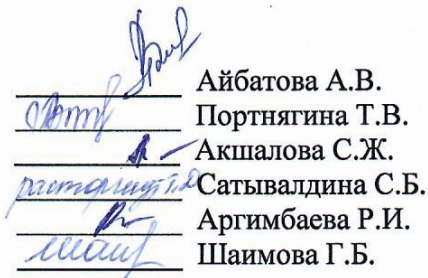 Айбатова А.В.
Портнягина Т.В.
Акшалова С.Ж.
расторгнут Т.Д. Сатывалдина С.Б.
Аргимбаева Р.И.
Шаимова Г.Б.